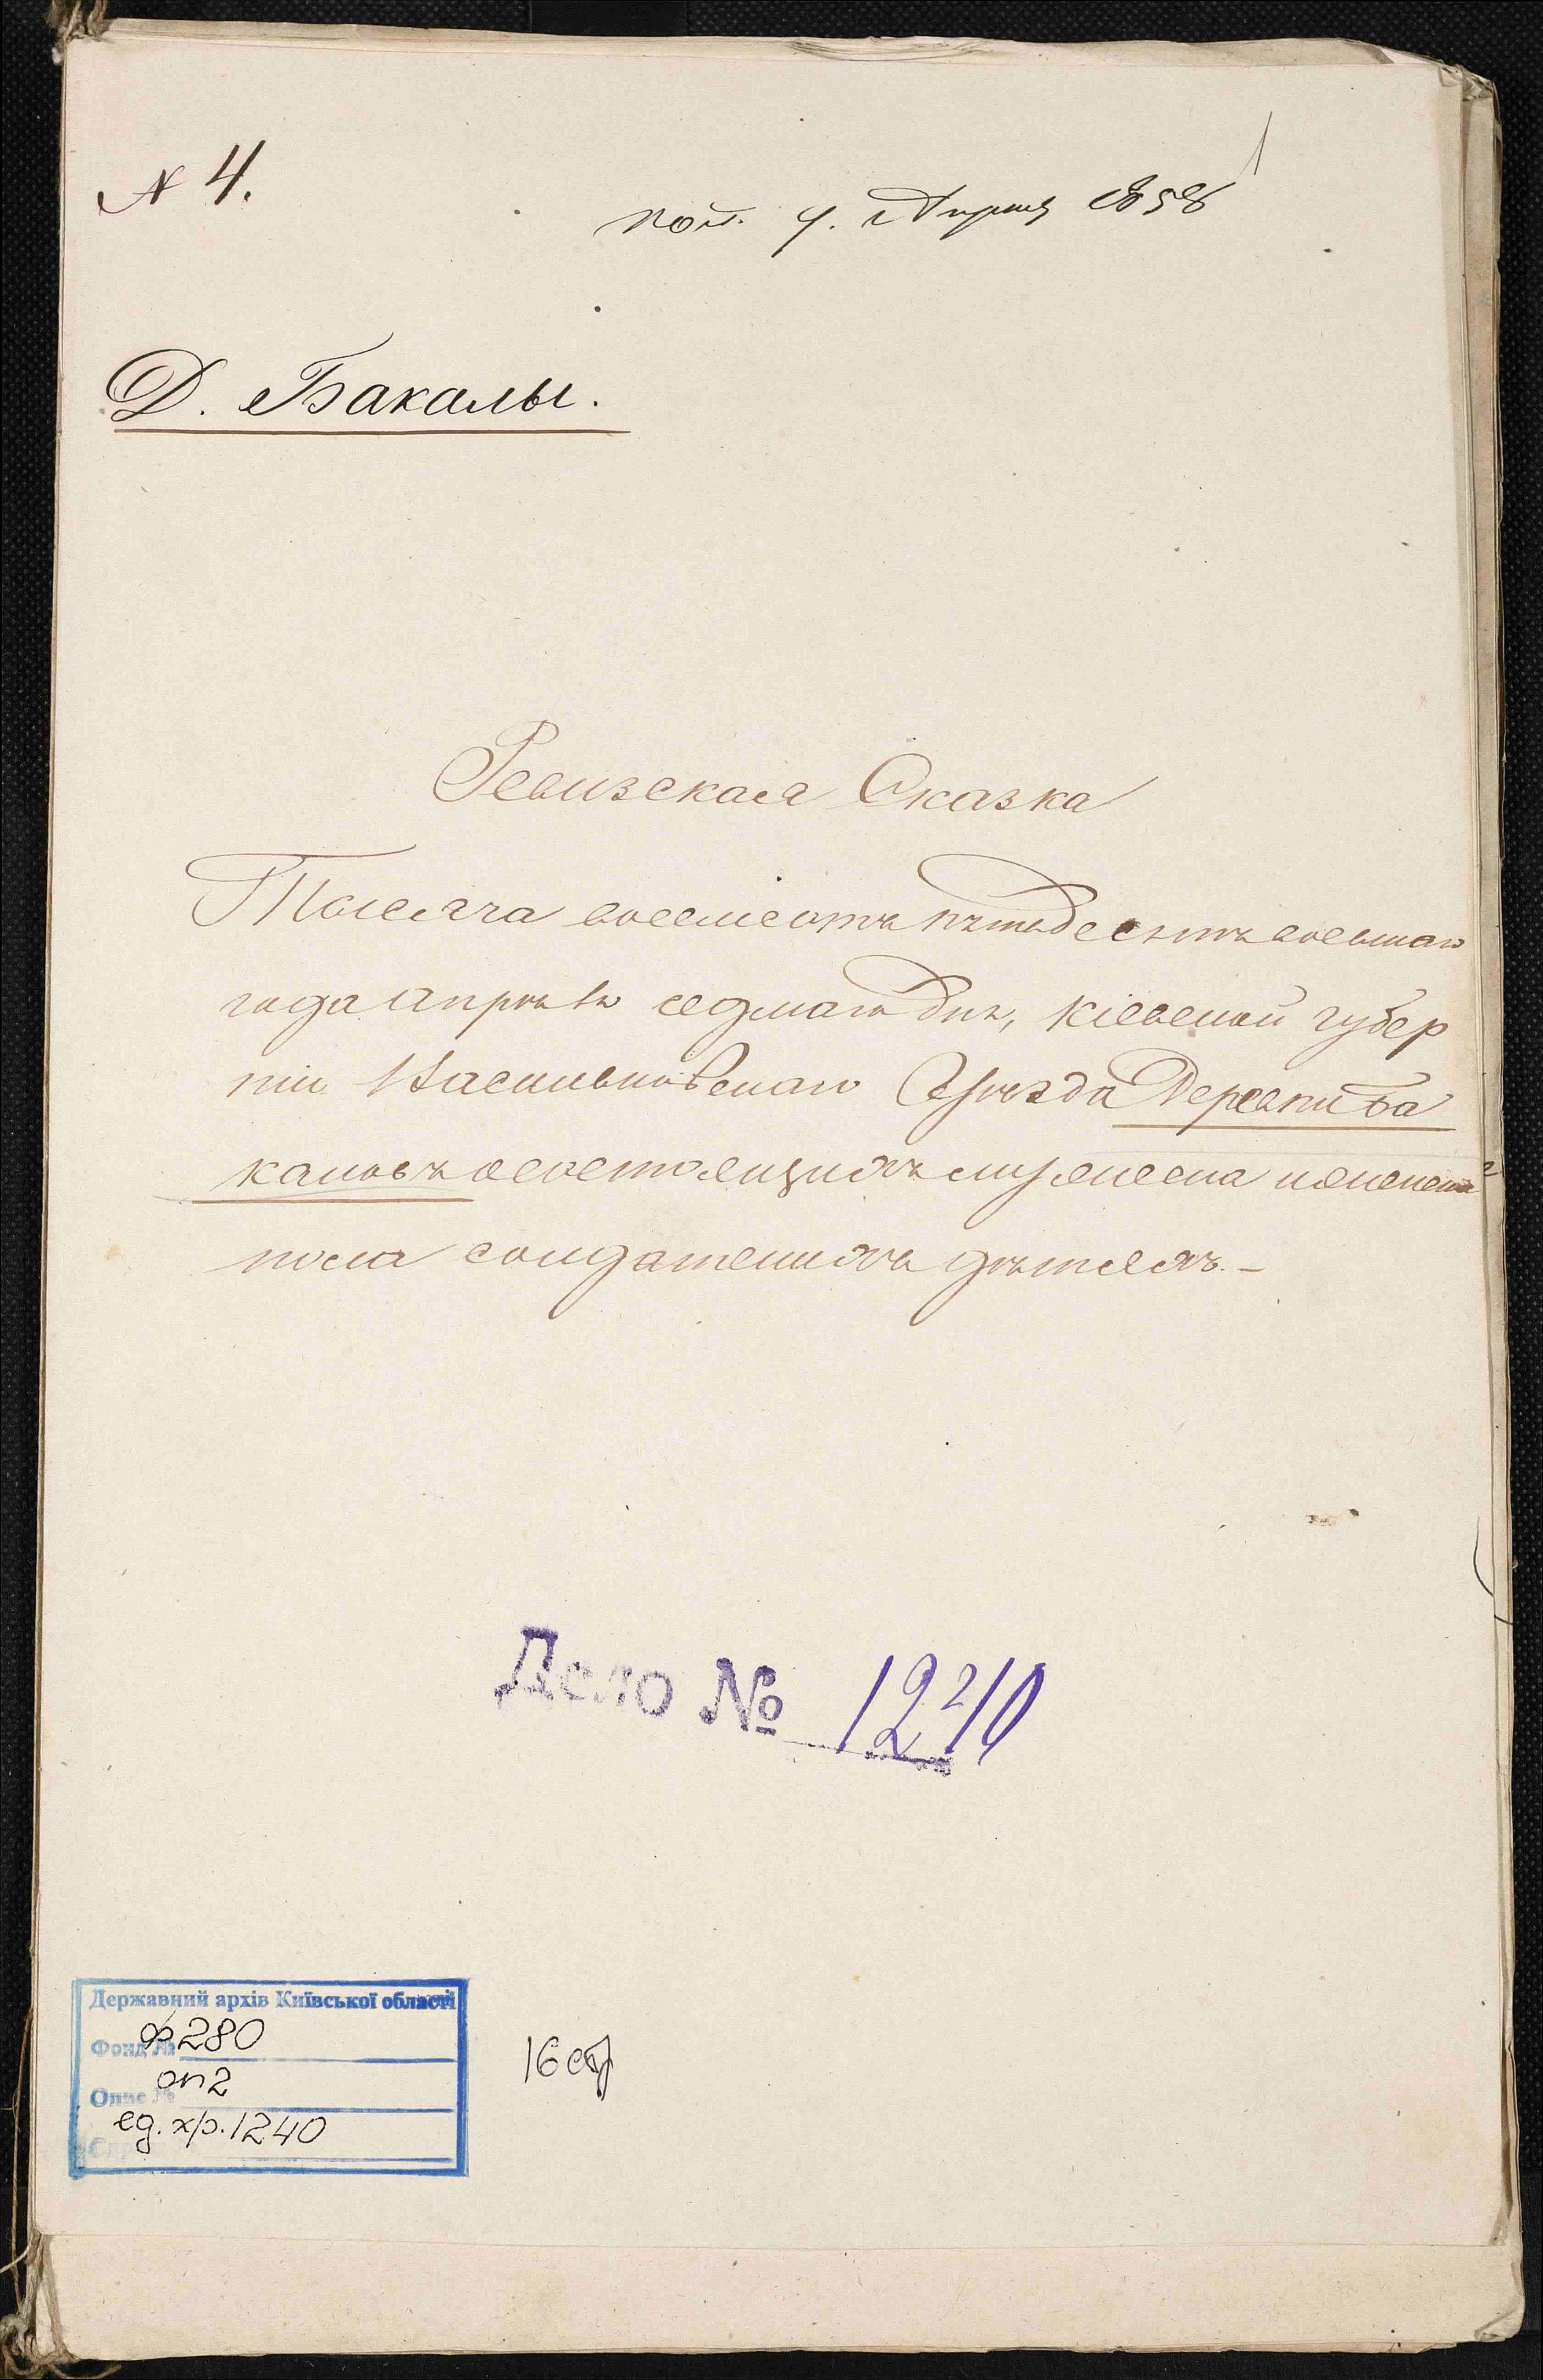 № 4.
1
пол. 9. Апреля 1858
Д. Бакалы.
Ревизская Сказка
Тысяча восемсотъ пятьдесятъ восьмаго
года Апрѣля седмаго дня, Кіевской губер
ніи Васильковскаго Уѣзда Деревни Ба
каловъ о состоящихъ мужеска и женска
пола солдатскихъ дѣтяхъ. –
Дело № 1240
Державний архів Київської області
Фонд № ф280
Опис № оп2
ед. хр. 1240
16